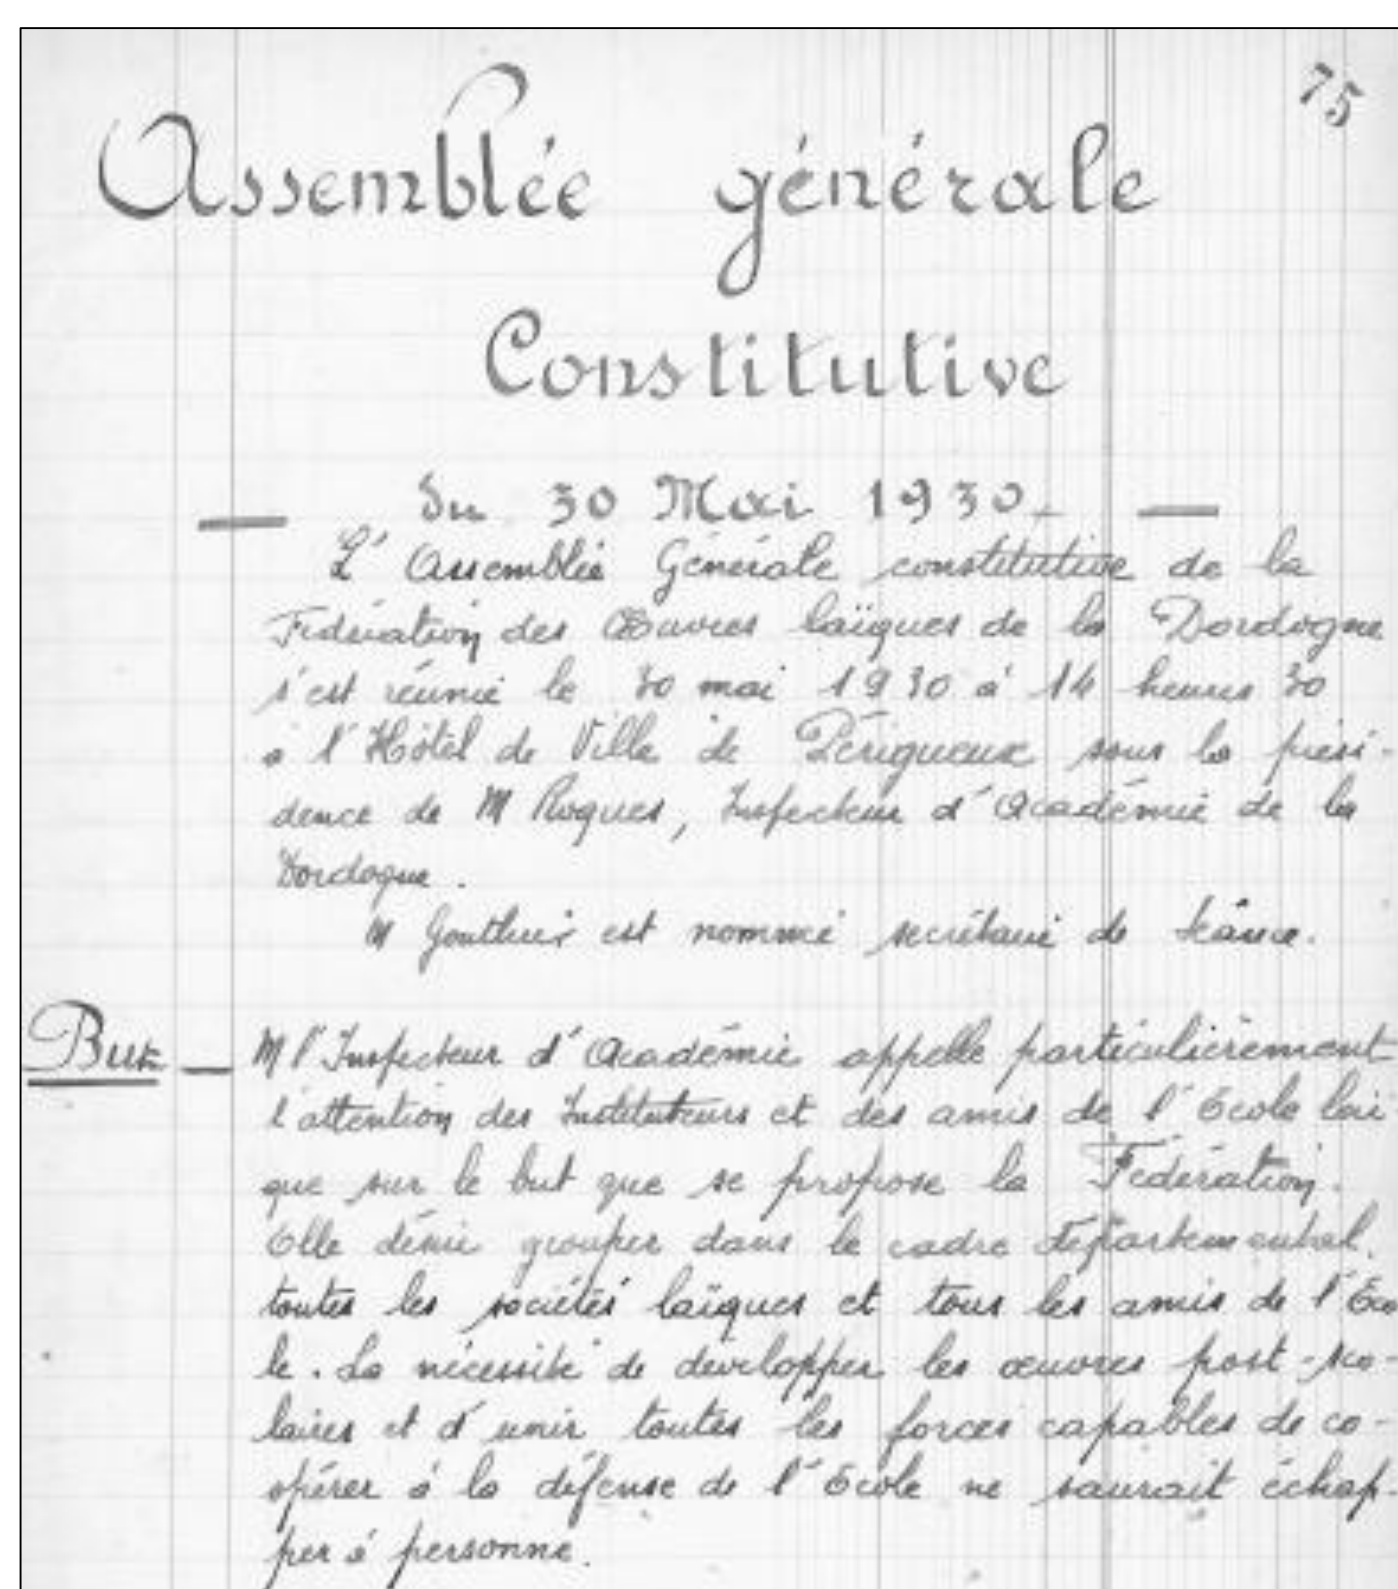 75
Assemblée générale
Constitutive
du 30 Mai 1930.
L'Assemblée Générale constitutive de la
Fédération des Œuvres laïques de la Dordogne
s'est réunie le 30 mai 1930 à 14 heures 30
à l'Hôtel de Ville de Périgueux sous la prési-
dence de M Roques, Inspecteur d'Académie de la
Dordogne.
M Gouthier est nommé secrétaire de séance.
But — M l'Inspecteur d'Académie appelle particulièrement
l'attention des Instituteurs et des amis de l'Ecole laï
que sur le but que se propose la Fédération.
Elle désire grouper dans le cadre départemental,
toutes les sociétés laïques et tous les amis de l'Eco
le. La nécessité de développer les œuvres post-sco-
laires et d'unir toutes les forces capables de co-
opérer à la défense de l'Ecole ne saurait échap-
per à personne.